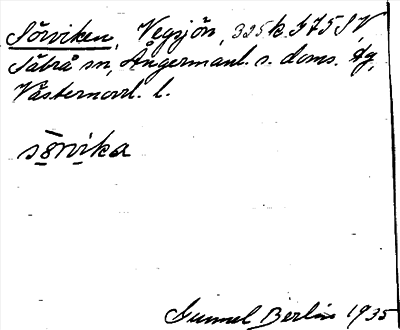 Sörviken, Vegsjön, 325 k. I 75 I V
Sätrå sn, Ångermanl. s. doms. dg,
Västernorrl. l.
sörvika
Gunnel Berlin 1935